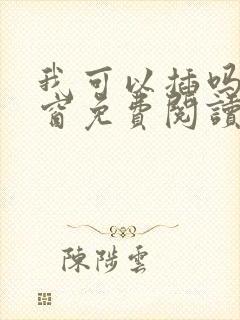 我可以插吗
窗免費閱讀
陳陟雲